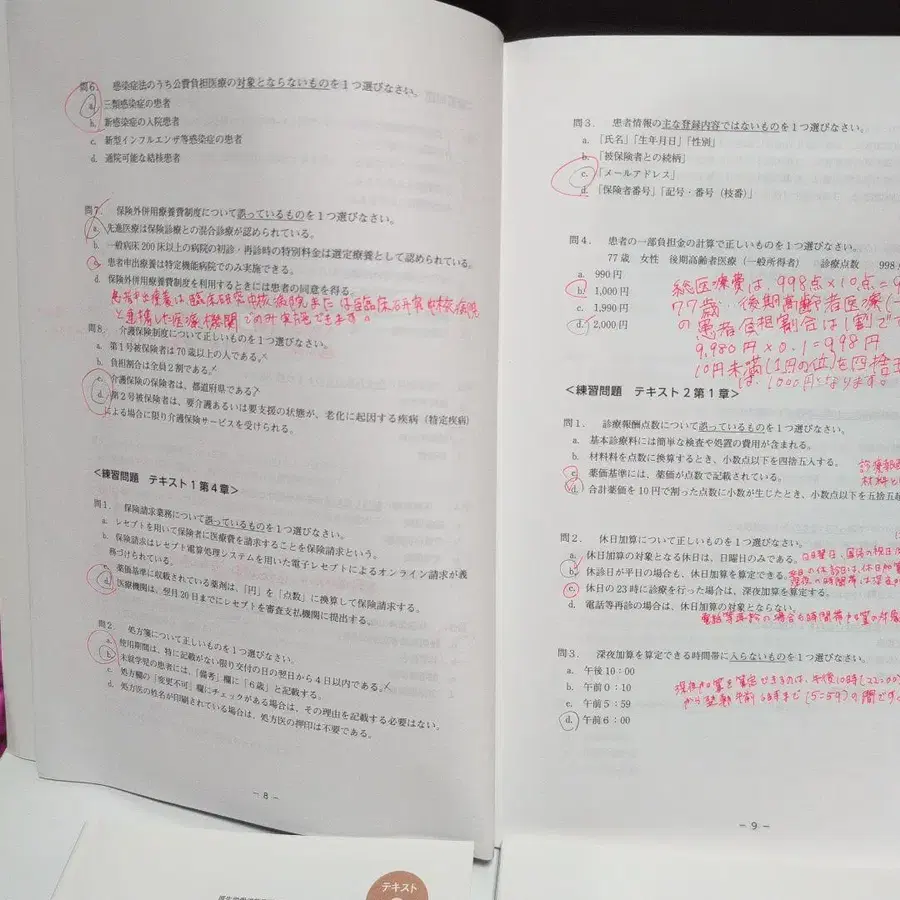 問6. 感染症法のうち公費負担医療の対象とならないものを1つ選びなさい。
a. 三類感染症の患者
b. 新感染症の入院患者
c. 新型インフルエンザ等感染症の患者
d. 通院可能な結核患者
問7. 保険外併用療養費制度について誤っているものを1つ選びなさい。
a. 先進医療は保険診療との混合診療が認められている。
b. 一般病床200床以上の病院の初診・再診時の特別料金は選定療養として認められている。
c. 患者申出療養は特定機能病院でのみ実施できる。
d. 保険外併用療養費制度を利用するときには患者の同意を得る。
患者申出療養は、臨床研究中核病院または臨床研究中核病院
と連携した医療機関でのみ実施できます。
問8. 介護保険制度について正しいものを1つ選びなさい。
a. 第1号被保険者は70歳以上の人である。
b. 負担割合は全員2割である。
c. 介護保険の保険者は、都道府県である。
d. 第2号被保険者は、要介護あるいは要支援の状態が、老化に起因する疾病(特定疾病)
による場合に限り介護保険サービスを受けられる。
<練習問題 テキスト1第4章>
問1. 保険請求業務について誤っているものを1つ選びなさい。
a. レセプトを用いて保険者に医療費を請求することを保険請求という。
b. 保険請求はレセプト電算処理システムを用いた電子レセプトによるオンライン請求が義
務づけられている。
c. 薬価基準に収載されている薬剤は、「円」を「点数」に換算して保険請求する。
d. 医療機関は、翌月20日までにレセプトを審査支払機関に提出する。
問2. 処方箋について正しいものを1つ選びなさい。
a. 使用期間は、特に記載がない限り交付の日の翌日から4日以内である。
b. 未就学児の患者には、「備考」欄に「6歳」と記載する。
c. 処方欄の「変更不可」欄にチェックがある場合は、その理由を記載する必要はない。
d. 処方医の姓名が印刷されている場合は、処方医の押印は不要である。
- 8 -
問3. 患者情報の主な登録内容ではないものを1つ選びなさい。
a. 「氏名」「生年月日」「性別」
b. 「被保険者との続柄」
c. 「メールアドレス」
d. 「保険者番号」「記号・番号(枝番)」
問4. 患者の一部負担金の計算で正しいものを1つ選びなさい。
77歳 女性 後期高齢者医療(一般所得者) 診療点数 998
a. 990円
b. 1,000円
c. 1,990円
d. 2,000円
総医療費は、998点×10点=9
77歳、後期高齢者医療(一
の患者負担割合は1割で
9,980円×0.1=998円
10円未満(1円の位)を四捨五
は、1000円となります。
<練習問題 テキスト2第1章>
問1. 診療報酬点数について誤っているものを1つ選びなさい。
a. 基本診療料には簡単な検査や処置の費用が含まれる。
b. 材料料を点数に換算するとき、小数点以下を四捨五入する。
c. 薬価基準には、薬価が点数で記載されている。
d. 合計薬価を10円で割った点数に小数が生じたとき、小数点以下を五捨五超
診療報酬
問2. 休日加算について正しいものを1つ選びなさい。
a. 休日加算の対象となる休日は、日曜日のみである。
b. 休診日が平日の場合も、休日加算を算定できる。
c. 休日の23時に診療を行った場合は、深夜加算を算定する。
d. 電話等再診の場合は、休日加算の対象とならない。
電話等再診の場合も時間帯
問3. 深夜加算を算定できる時間帯に入らないものを1つ選びなさい。
a. 午後10:00
b. 午前0:10
c. 午前5:59
d. 午前6:00
深夜加算を算定できるのは、午後10時(22:00)
から翌朝午前6時まで(5:59)の間です
- 9 -
テキスト